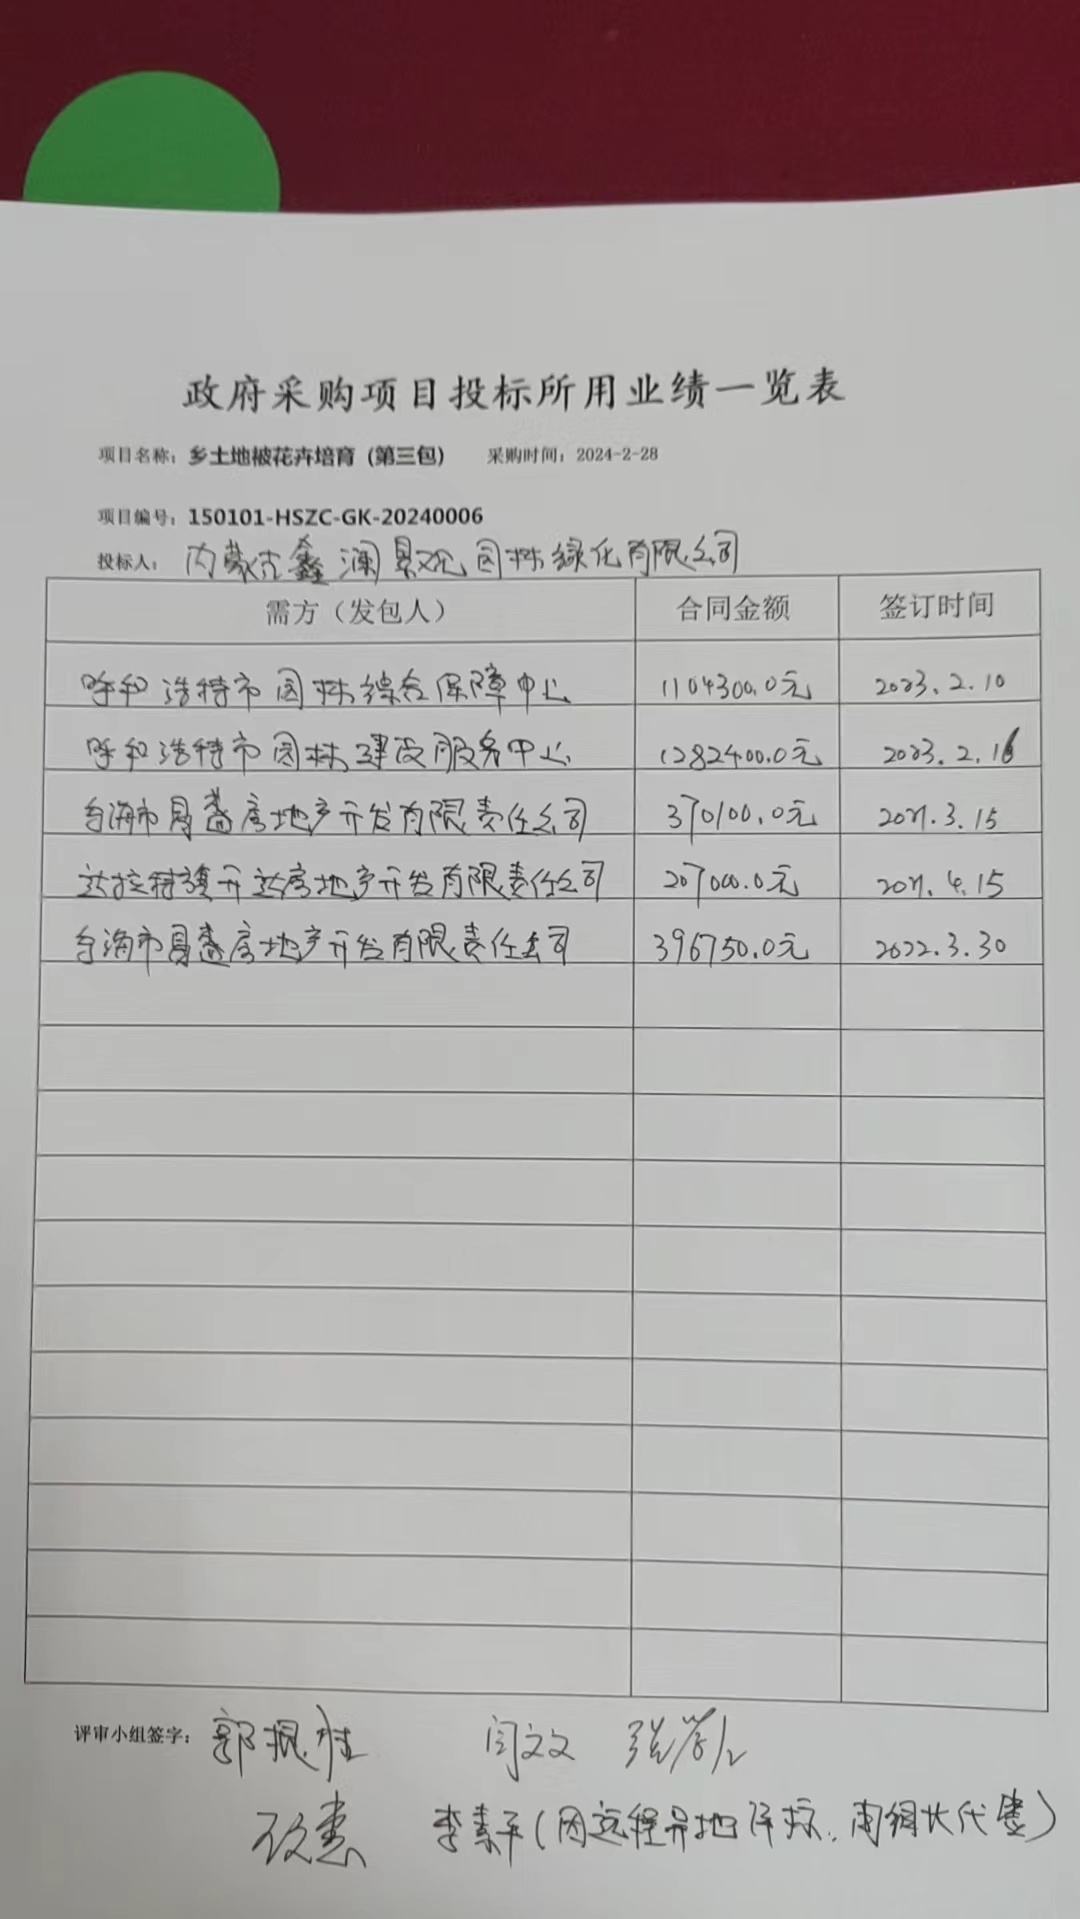 政府采购项目投标所用业绩一览表
项目名称：乡土地被花卉培育（第三包） 采购时间：2024-2-28
项目编号：150101-HSZC-GK-20240006
投标人：内蒙古鑫澜景观园林绿化有限公司
需方（发包人） 合同金额 签订时间
呼和浩特市园林综合保障中心 1104300.0元 2023.2.10
呼和浩特市园林建设服务中心 1282400.0元 2023.2.16
乌海市昌盛房地产开发有限责任公司 370100.0元 2021.3.15
达拉特旗开达房地产开发有限责任公司 207000.0元 2021.4.15
乌海市昌盛房地产开发有限责任公司 396750.0元 2022.3.30
评审小组签字： 郭振 闫文文
李素平（因远程异地评标，由组长代签）